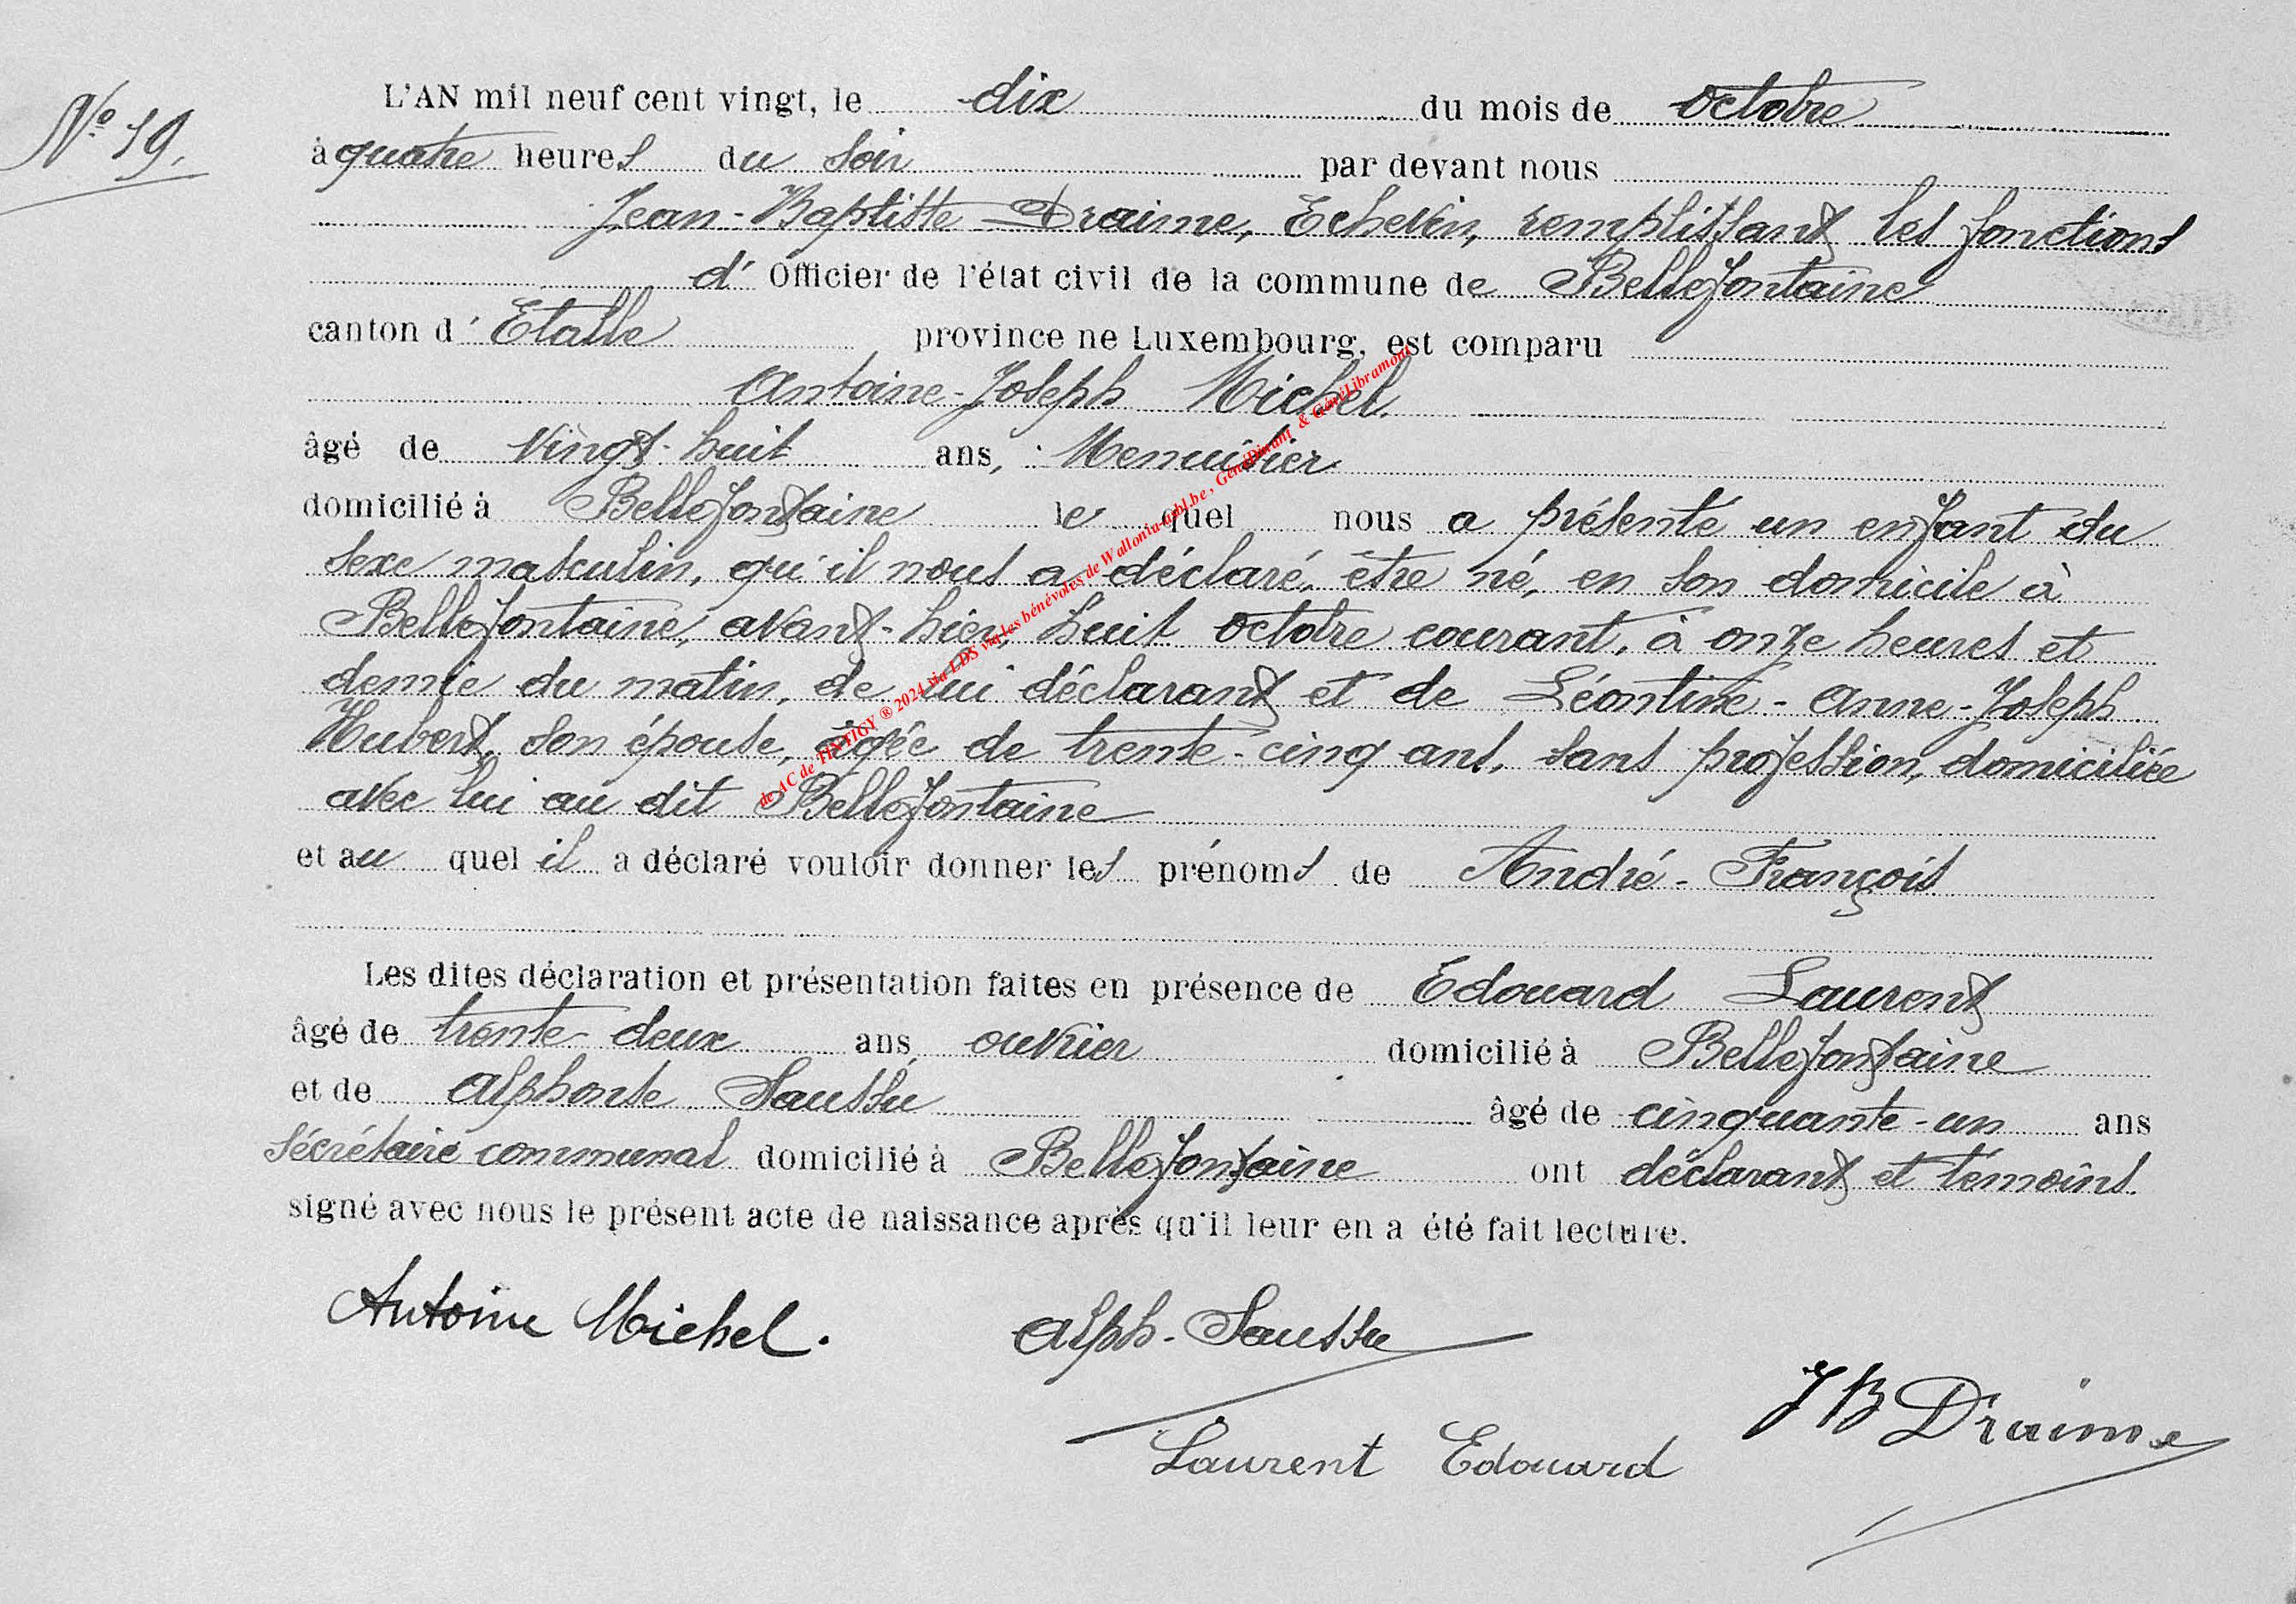 N° 19.
L'AN mil neuf cent vingt, le dix du mois de octobre
à quatre heures du soir par devant nous
Jean-Baptiste Draime, Echevin, remplissant les fonctions
d' Officier de l'état civil de la commune de Bellefontaine
canton d' Etalle province ne Luxembourg, est comparu
Antoine-Joseph Michel.
âgé de vingt-huit ans, Menuisier
domicilié à Bellefontaine le quel nous a présenté un enfant du
sexe masculin, qu'il nous a déclaré, être né, en son domicile à
Bellefontaine, avant-hier, huit octobre courant, à onze heures et
demie du matin, de lui déclarant et de Léontine-Anne-Joseph
Hubert, son épouse, âgée de trente-cinq ans, sans profession, domiciliée
avec lui au dit Bellefontaine
et au quel il a déclaré vouloir donner les prénoms de André-François
Les dites déclaration et présentation faites en présence de Edouard Laurent
âgé de trente-deux ans, ouvrier domicilié à Bellefontaine
et de Alphonse Saussu âgé de cinquante-un ans
sécrétaire communal domicilié à Bellefontaine ont déclarant et témoins.
signé avec nous le présent acte de naissance après qu'il leur en a été fait lecture.
Antoine Michel.
Alph-Saussu
JB Draime
Laurent Edouard
de AC de TINTIGY ® 2024 via LDS via les bénévoles de Wallonia-asbl.be, GénéDinant & GénéLibramont